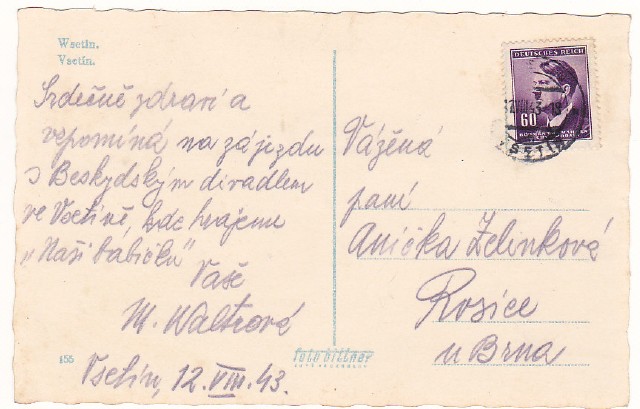 Wsetin.
Vsetín.
Srdečně zdraví a
vzpomíná na zájezdu
s Beskydským divadlem
ve Vsetíně, kde hrajeme
„Naši babičku"
Vaše
M. Waltrová
Vsetín, 12. VIII. 43.
155
foto bittner
DEUTSCHES REICH
60
Vážená
paní
Anička Zelinková
Rosice
u Brna